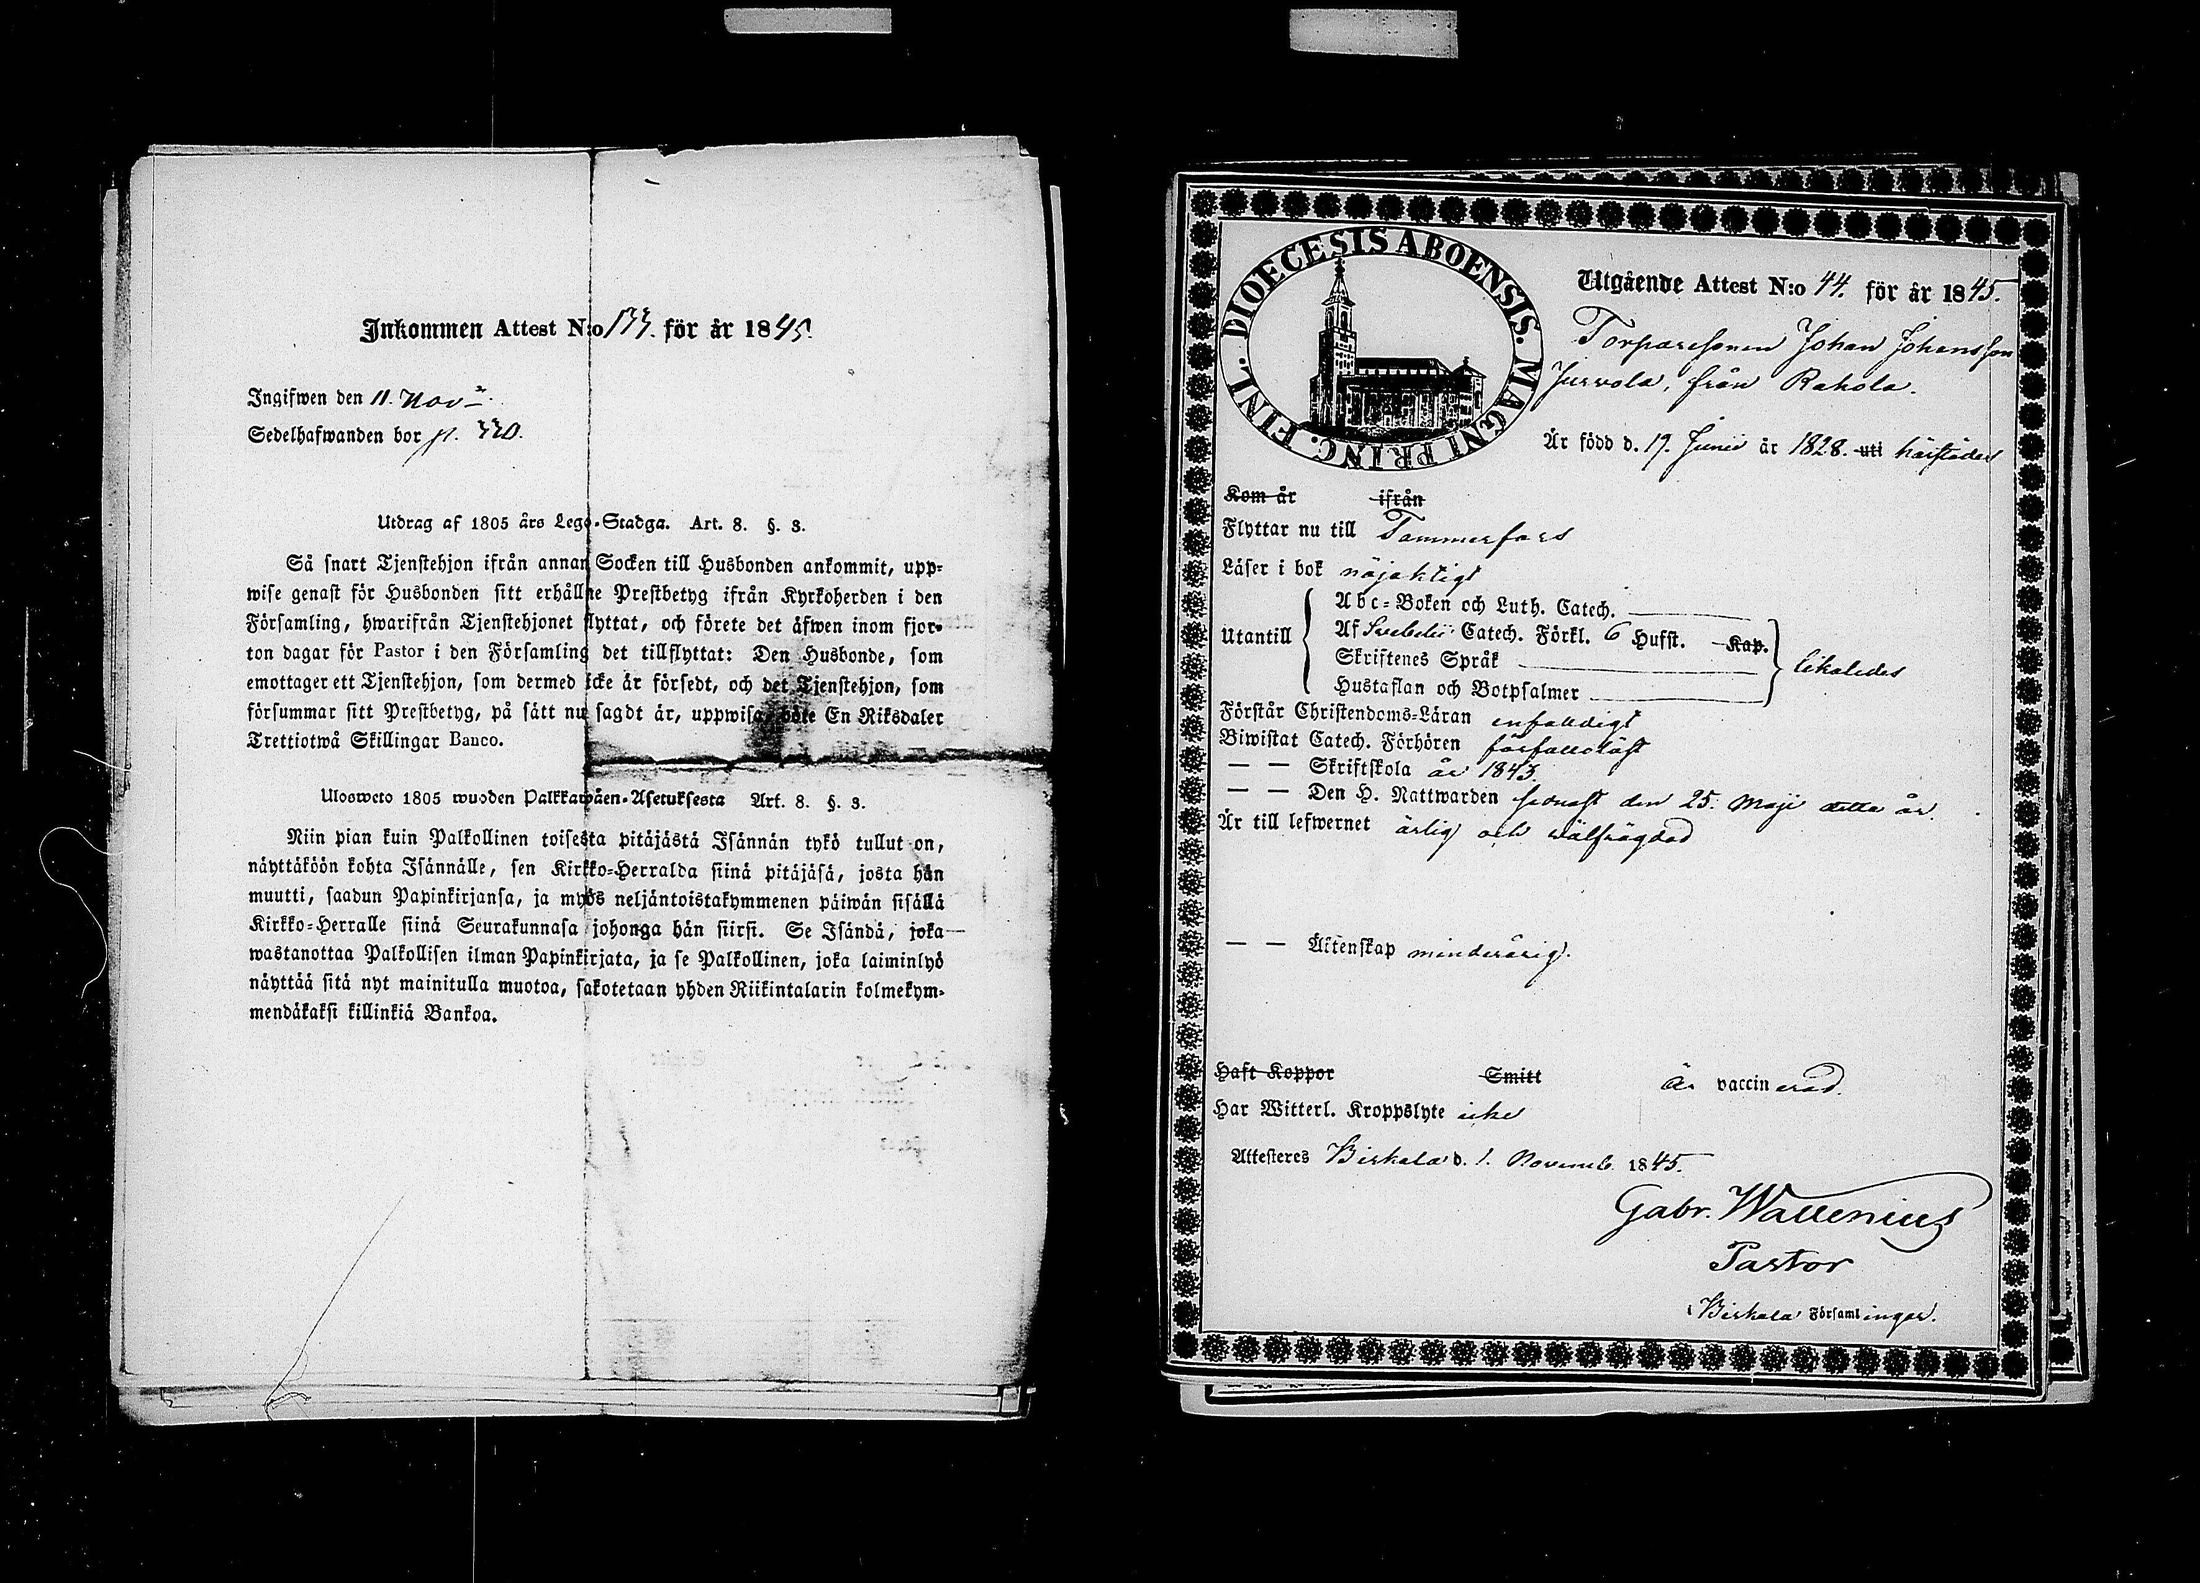 Inkommen Attest N:o 133. för år 1845.
Ingifwen den 11. Nov:r
Sedelhafwanden bor p. 330.
Utdrag af 1805 års Lego-Stadga. Art. 8. §. 3.
Så snart Tjenstehjon ifrån annan Socken till Husbonden ankommit, upp-
wise genast för Husbonden sitt erhållne Prestbetyg ifrån Kyrkoherden i den
Församling, hwarifrån Tjenstehjonet flyttat, och förete det äfwen inom fjor-
ton dagar för Pastor i den Församling det tillflyttat: Den Husbonde, som
emottager ett Tjenstehjon, som dermed icke är försedt, och det Tjenstehjon, som
försummar sitt Prestbetyg, på sätt nu sagdt är, uppwisa, böte En Riksdaler
Trettiotwå Skillingar Banco.
Ulosweto 1805 wuoden Palkkawäen-Asetuksesta Art. 8. §. 3.
Niin pian kuin Palkollinen toisesta pitäjästä Isännän tykö tullut on,
näyttäköön kohta Isännälle, sen Kirkko-Herralda siinä pitäjäsä, josta hän
muutti, saadun Papinkirjansa, ja myös neljäntoistakymmenen päiwän sisällä
Kirkko-Herralle siinä Seurakunnasa johonga hän siirsi. Se Isändä, joka
wastanottaa Palkollisen ilman Papinkirjata, ja se Palkollinen, joka laiminlyö
näyttää sitä nyt mainitulla muotoa, sakotetaan yhden Riikintalarin kolmekym-
mendäkaksi killinkiä Bankoa.
DIOECESIS ABOENSIS. MAGNI PRINC. FINL.
Utgående Attest N:o 44. för år 1845.
Torparesonen Johan Johansson
Jussola, från Rahola.
Är född d. 19. Junii år 1828. uti härstädes
Kom år ifrån
Flyttar nu till Tammerfors
Läser i bok nöjaktigt
Abc-Boken och Luth. Catech.
Utantill Af Svebelii Catech. Förkl. 6 Hufst. Kap.
Skriftenes Språk likaledes
Hustaflan och Botpsalmer
Förstår Christendoms-Läran enfalldigt
Biwistat Catech. Förhören förfallolöst
— — Skriftskola år 1843.
— — Den H. Nattwarden sednast den 25. Maji detta år.
Är till lefwernet ärlig och wälfrägdad
— — Äktenskap minderårig.
Haft Koppor Smitt är vaccinerad.
Har Witterl. Kroppslyte icke
Attesteres Birkala d. 1. Novemb. 1845.
Gabr. Wallenius
Pastor
i Birkala Församlingar.